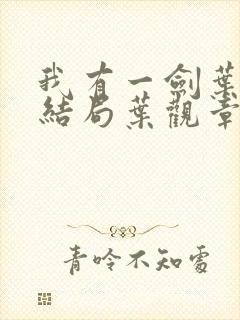 我有一劍葉
結局葉觀章
青呤不知處